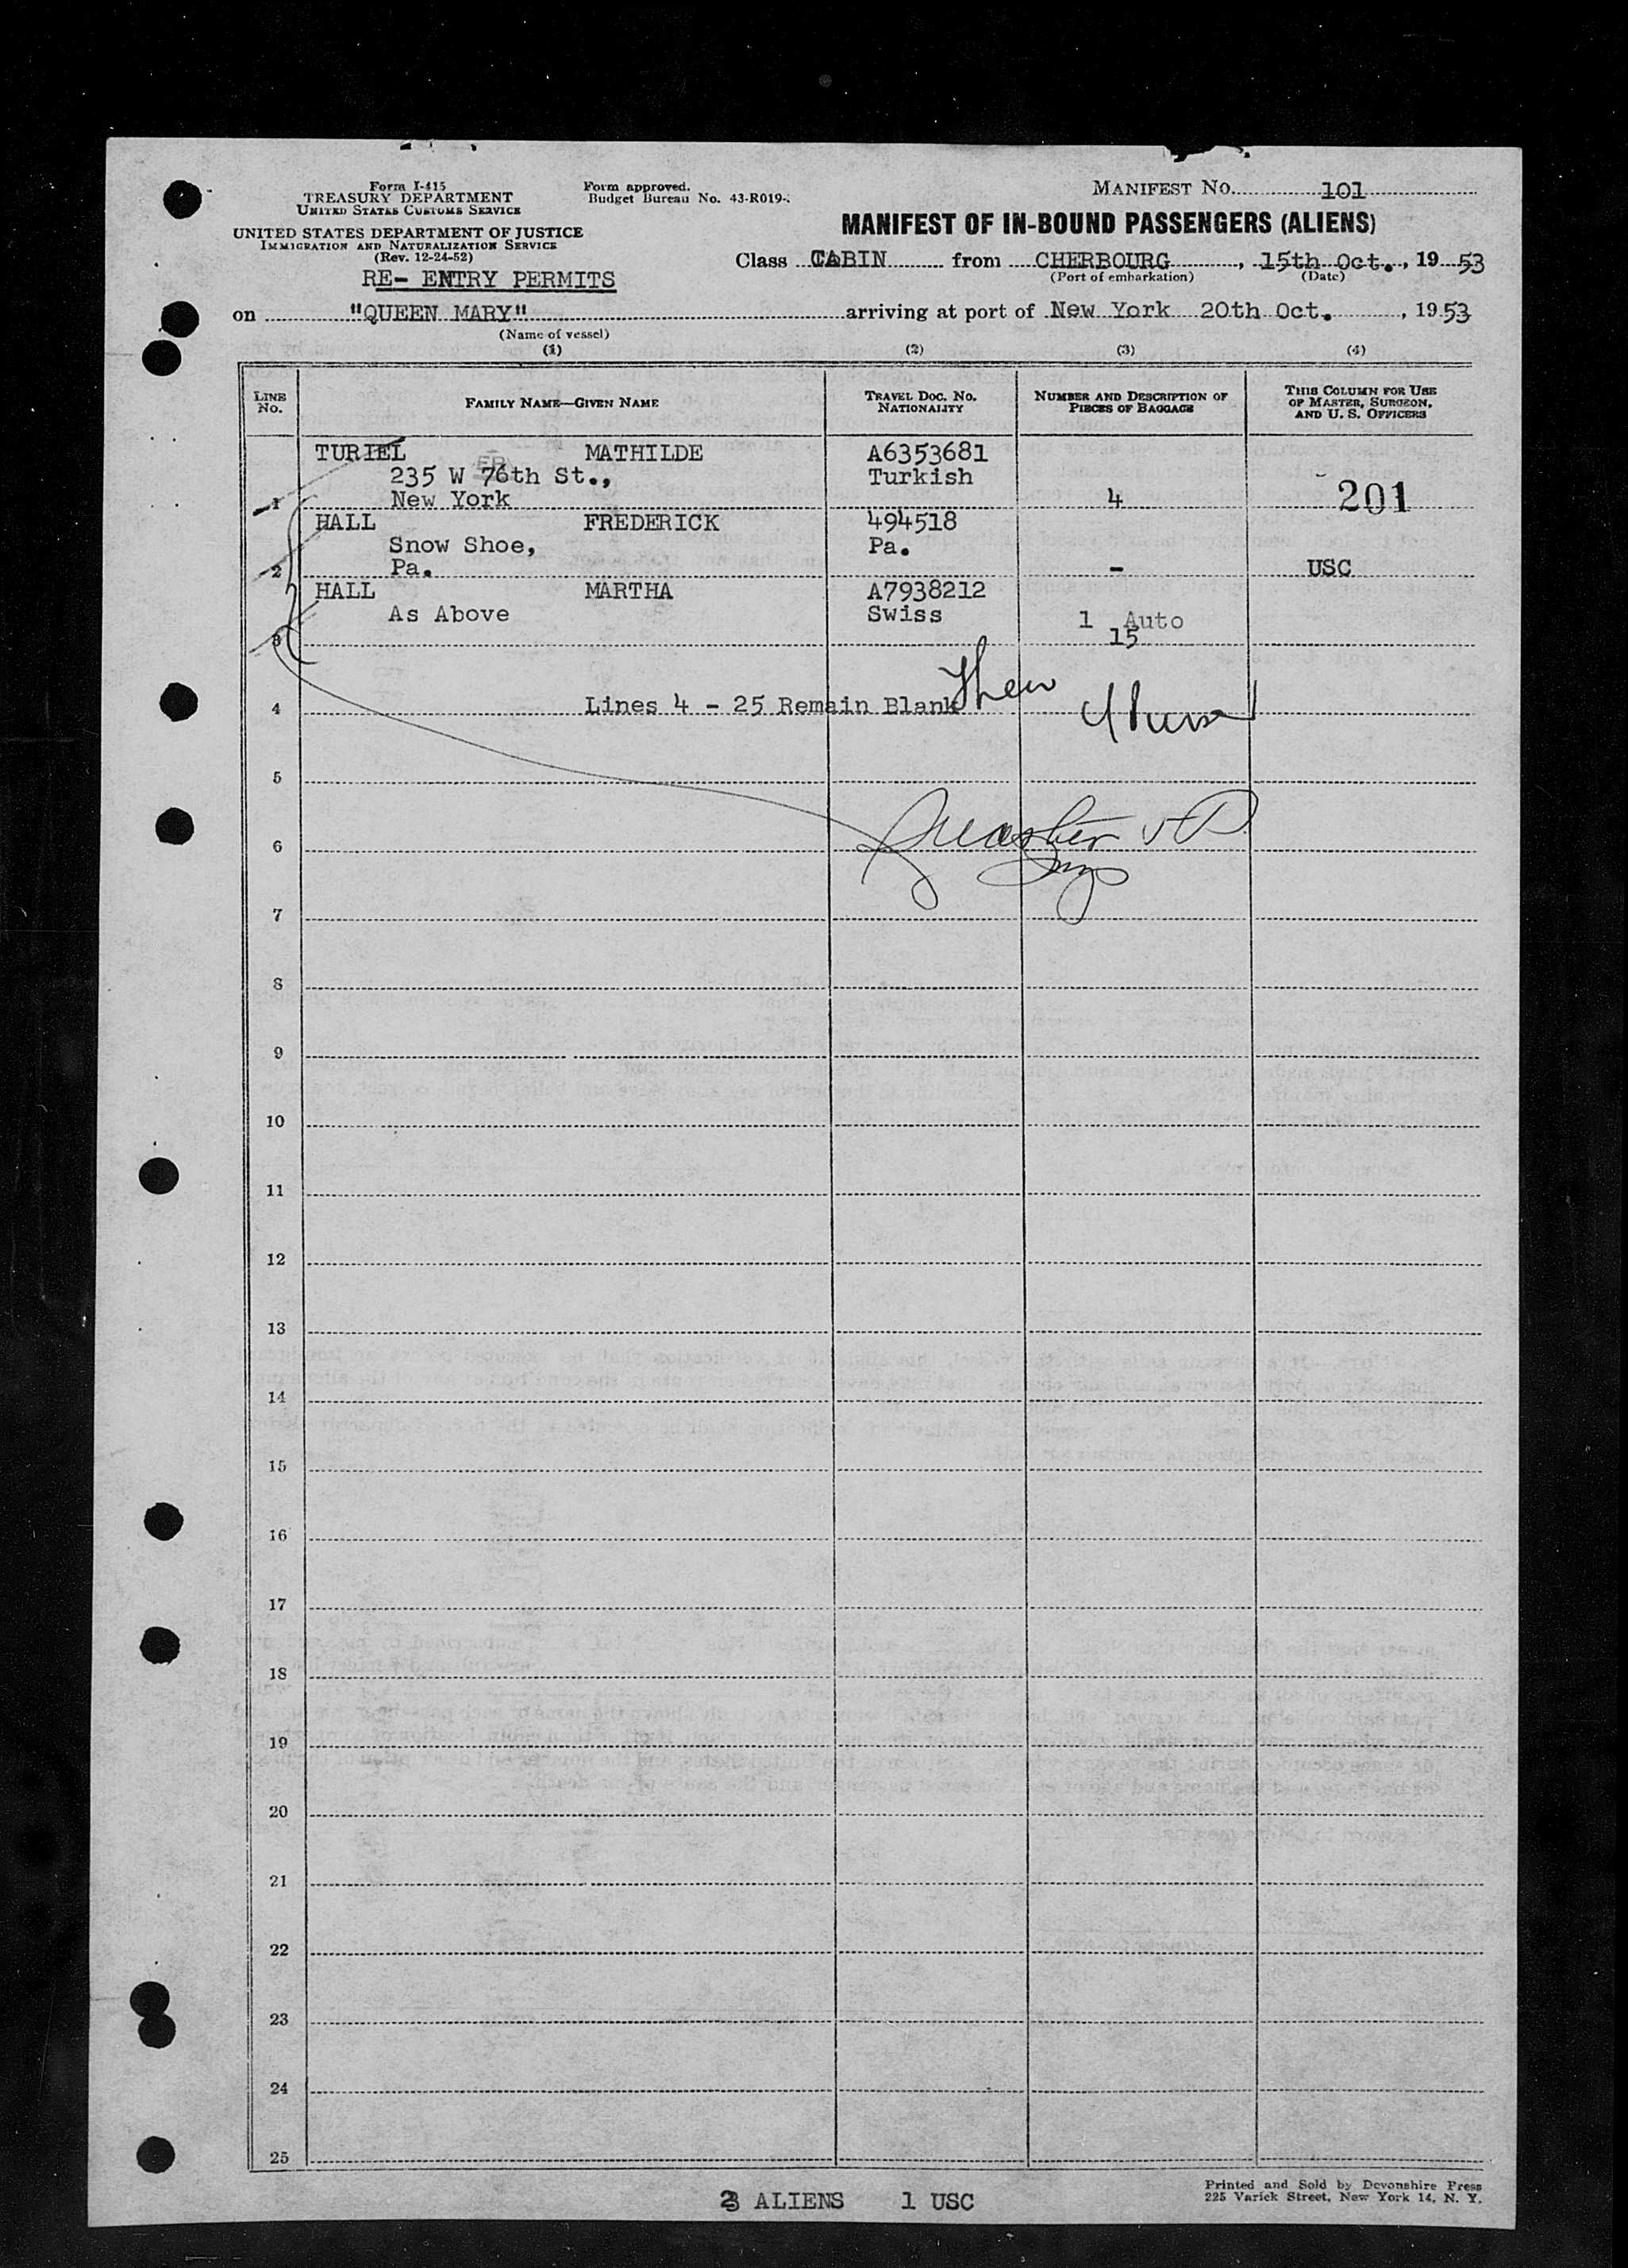 Form I-415
TREASURY DEPARTMENT
UNITED STATES CUSTOMS SERVICE
UNITED STATES DEPARTMENT OF JUSTICE
IMMIGRATION AND NATURALIZATION SERVICE
(Rev. 12-24-52)
RE- ENTRY PERMITS
Form approved.
Budget Bureau No. 43-R019-
MANIFEST NO. 101
MANIFEST OF IN-BOUND PASSENGERS (ALIENS)
Class CABIN from CHERBOURG, 15th Oct., 19 53
(Port of embarkation) (Date)
on "QUEEN MARY" arriving at port of New York 20th Oct., 19 53
(Name of vessel)
(1) (2) (3) (4)
LINE NO. FAMILY NAME—GIVEN NAME TRAVEL DOC. NO. NATIONALITY NUMBER AND DESCRIPTION OF PIECES OF BAGGAGE THIS COLUMN FOR USE OF MASTER, SURGEON, AND U. S. OFFICERS
TURIEL MATHILDE A6353681
235 W 76th St., Turkish
1 New York 4 201
HALL FREDERICK 494518
Snow Shoe, Pa.
2 Pa. - USC
HALL MARTHA A7938212
As Above Swiss 1 Auto
3 15
4 Lines 4 - 25 Remain Blank
5
6
7
8
9
10
11
12
13
14
15
16
17
18
19
20
21
22
23
24
25
2 ALIENS 1 USC
Printed and Sold by Devonshire Press
225 Varick Street, New York 14, N. Y.